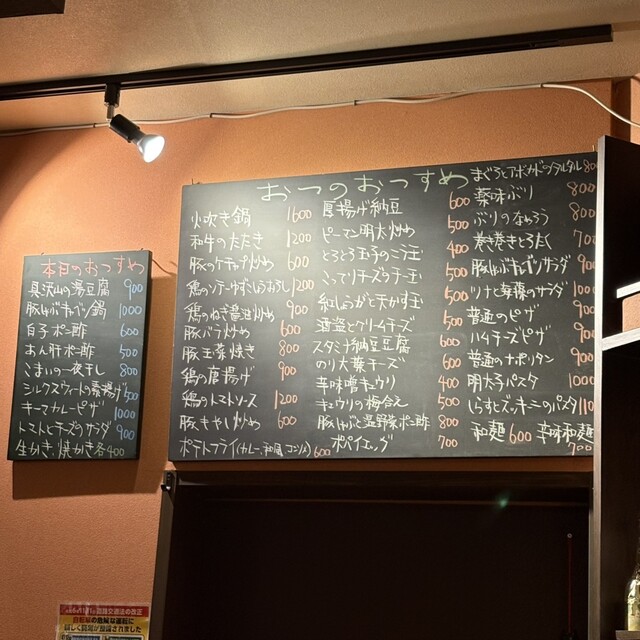 本日のおすすめ
具沢山の湯豆腐 900
豚しゃぶキャベツ鍋 1000
白子ポン酢 600
あん肝ポン酢 500
こまい一夜干し 800
シルクスウィートの素揚げ 500
キーマカレーピザ 1000
トマトとチーズのサラダ 900
生かき、焼かき 各400
おつのおつすめ
火吹き鍋 1600
和牛のたたき 1200
豚のケチャップ炒め 600
鶏のソテーゆずこしょうおろし 1200
鶏のねぎ醤油炒め 900
豚バラ炒め 600
豚玉葱焼き 800
鶏の唐揚げ 900
鶏のトマトソース 1200
豚もやし炒め 600
ポテトフライ(カレー、和風、コンソメ) 600
厚揚げ納豆 600
ピーマン明太炒め 500
とろとろ玉子のニラ玉 400
こってりチーズのチー玉 500
紅しょうがと天かす玉 500
酒盗とクリームチーズ 600
スタミナ納豆豆腐 600
のり大葉チーズ 600
辛味噌キュウリ 400
キュウリの梅合え 500
豚しゃぶと温野菜ポン酢 800
ポパイエッグ 700
まぐろとアボカドのタルタル 800
薬味ぶり 800
ぶりのなめろう 800
巻き巻きとろたく 700
豚しゃぶキャベツサラダ 900
ツナと海藻のサラダ 1000
普通のピザ 900
ハムチーズピザ 900
普通のナポリタン 900
明太子パスタ 1000
しらすとズッキーニのパスタ 110
和麺 600 辛味和麺 700
自転車の危険な運転に
新しく罰則が整備されました